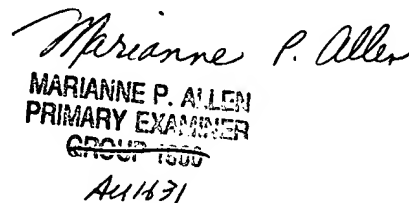 Marianne P. Allen
MARIANNE P. ALLEN
PRIMARY EXAMINER
GROUP 1800
AU1631